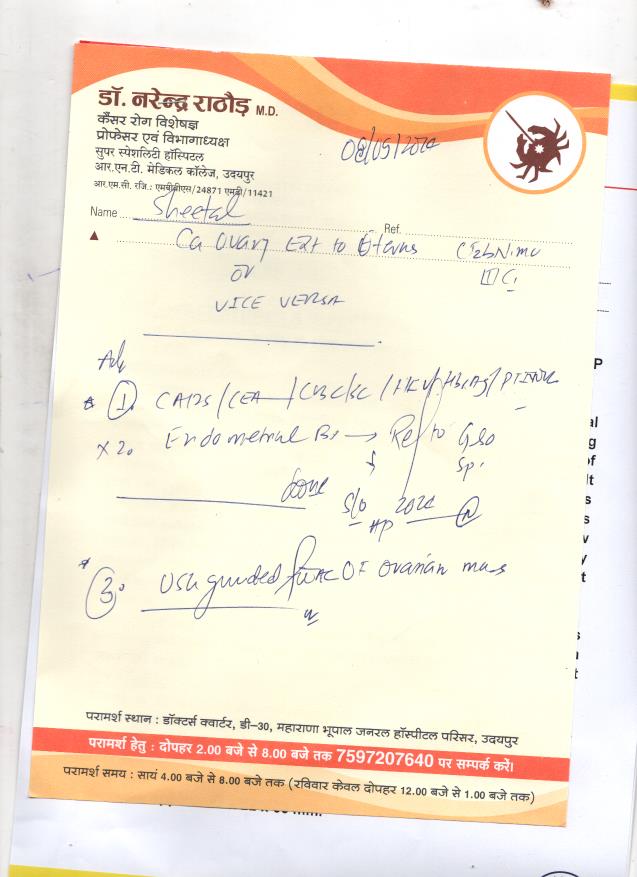 डॉ. नरेन्द्र राठौड़ M.D.
कैंसर रोग विशेषज्ञ
प्रोफेसर एवं विभागाध्यक्ष
सुपर स्पेशलिटी हॉस्पिटल
आर.एन.टी. मेडिकल कॉलेज, उदयपुर
आर.एम.सी. रजि.: एमबीबीएस/24871 एमडी/11421
08/05/2024
Name Sheetal Ref.
Ca Ovary Ext to Uterus
or
VICE VERSA
Adv
1. CA125/CEA/CBC/SC/HIV/HBsAg/PTINR
x 2. Endometrial Bx → Ref to
done
3. USG guided FNAC OF Ovarian mass
परामर्श स्थान : डॉक्टर्स क्वार्टर, डी-30, महाराणा भूपाल जनरल हॉस्पीटल परिसर, उदयपुर
परामर्श हेतु : दोपहर 2.00 बजे से 8.00 बजे तक 7597207640 पर सम्पर्क करें।
परामर्श समय : सायं 4.00 बजे से 8.00 बजे तक (रविवार केवल दोपहर 12.00 बजे से 1.00 बजे तक)